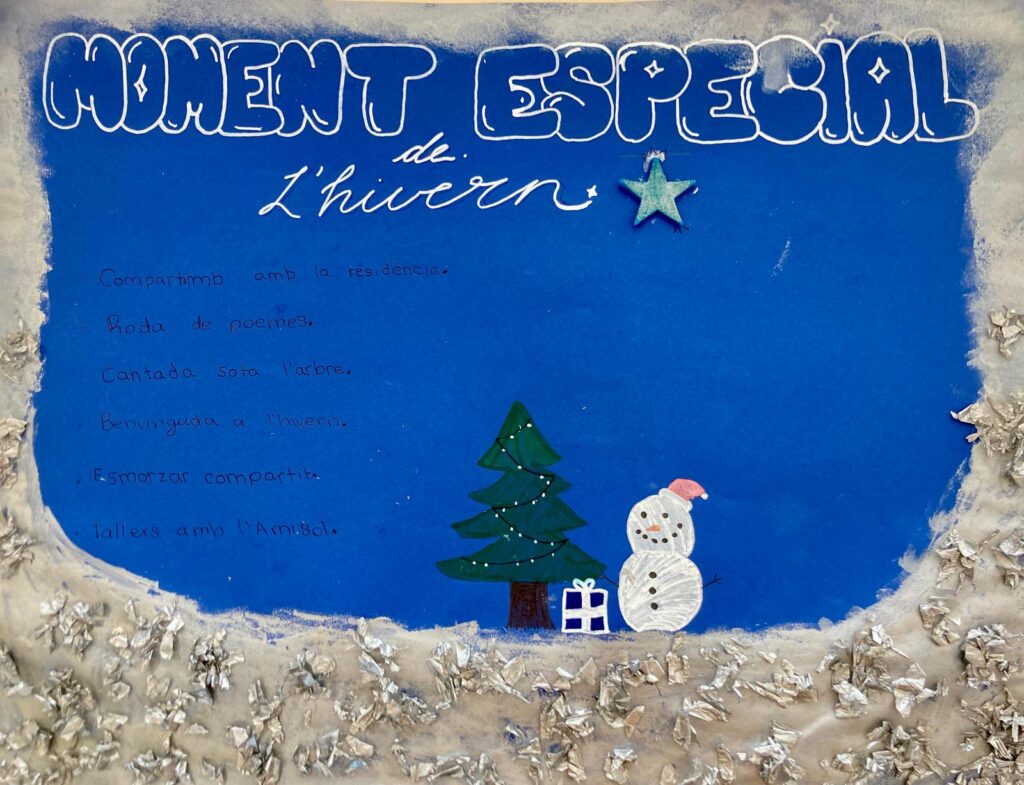 MOMENT ESPECIAL
de
L'hivern
- Compartimb amb la residència.
- Roda de poemes.
- Cantada sota l'arbre.
- Benvinguda a l'hivern.
- Esmorzar compartit.
- Tallers amb l'Amisol.